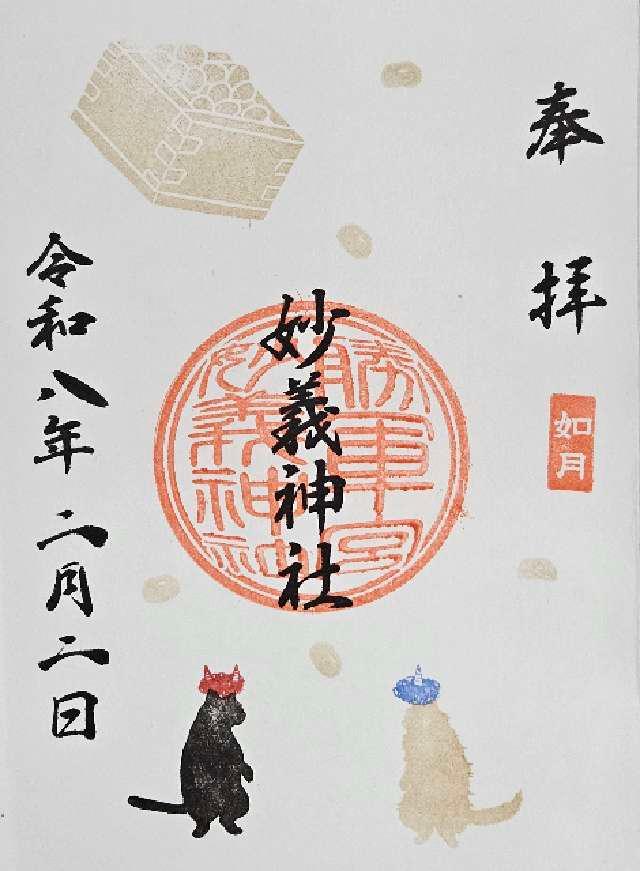 奉拝
如月
妙義神社
令和八年二月二日